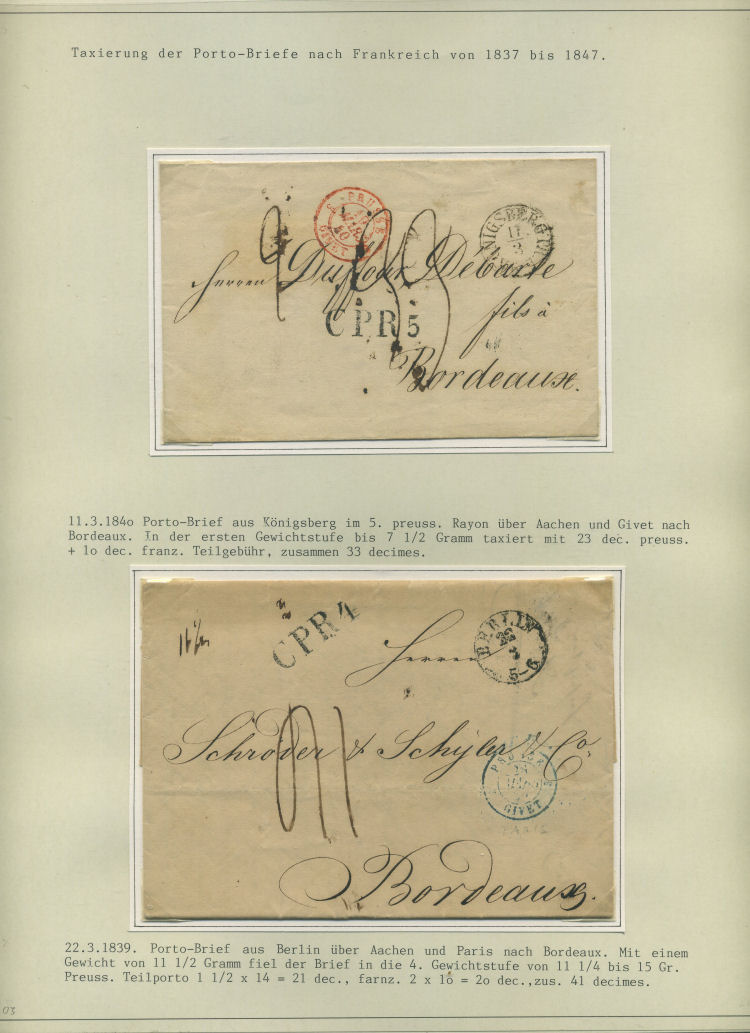 Taxierung der Porto-Briefe nach Frankreich von 1837 bis 1847.
PRUSSE
GIVET
KÖNIGSBERG
11
3
Herren Duffour, Débarte
fils à
CPR5
Bordeaux.
11.3.184o Porto-Brief aus Königsberg im 5. preuss. Rayon über Aachen und Givet nach
Bordeaux. In der ersten Gewichtstufe bis 7 1/2 Gramm taxiert mit 23 dec. preuss.
+ 1o dec. franz. Teilgebühr, zusammen 33 decimes.
CPR4
BERLIN
22
3
5-6
Herren
Schröder & Schÿler & Co.
PRUSSE
GIVET
PARIS
Bordeaux.
22.3.1839. Porto-Brief aus Berlin über Aachen und Paris nach Bordeaux. Mit einem
Gewicht von 11 1/2 Gramm fiel der Brief in die 4. Gewichtstufe von 11 1/4 bis 15 Gr.
Preuss. Teilporto 1 1/2 x 14 = 21 dec., farnz. 2 x 1o = 2o dec.,zus. 41 decimes.
03